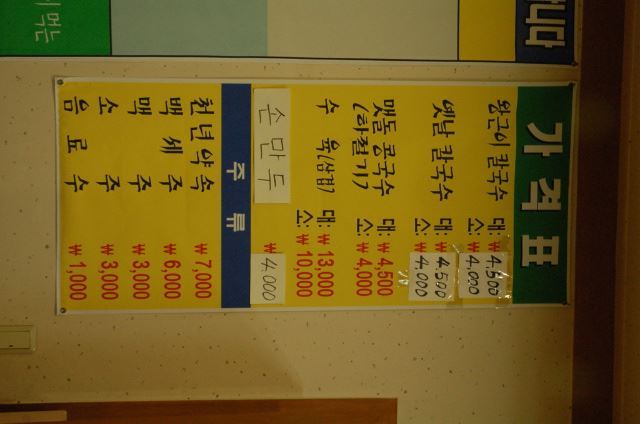 가격표
왕근이 칼국수 대: 4,500
소: ₩ 4,000
옛날 칼국수 대: ₩ 4,500
소: ₩ 4,000
맷돌 콩국수 대: ₩ 4,500
(하절기) 소: ₩ 4,000
수 육(삼겹) 대: ₩ 13,000
소: ₩ 10,000
손만두 ₩ 4,000
주류
천년약속 ₩ 7,000
백세주 ₩ 6,000
맥주 ₩ 3,000
소주 ₩ 3,000
음료수 ₩ 1,000
니다
먹는